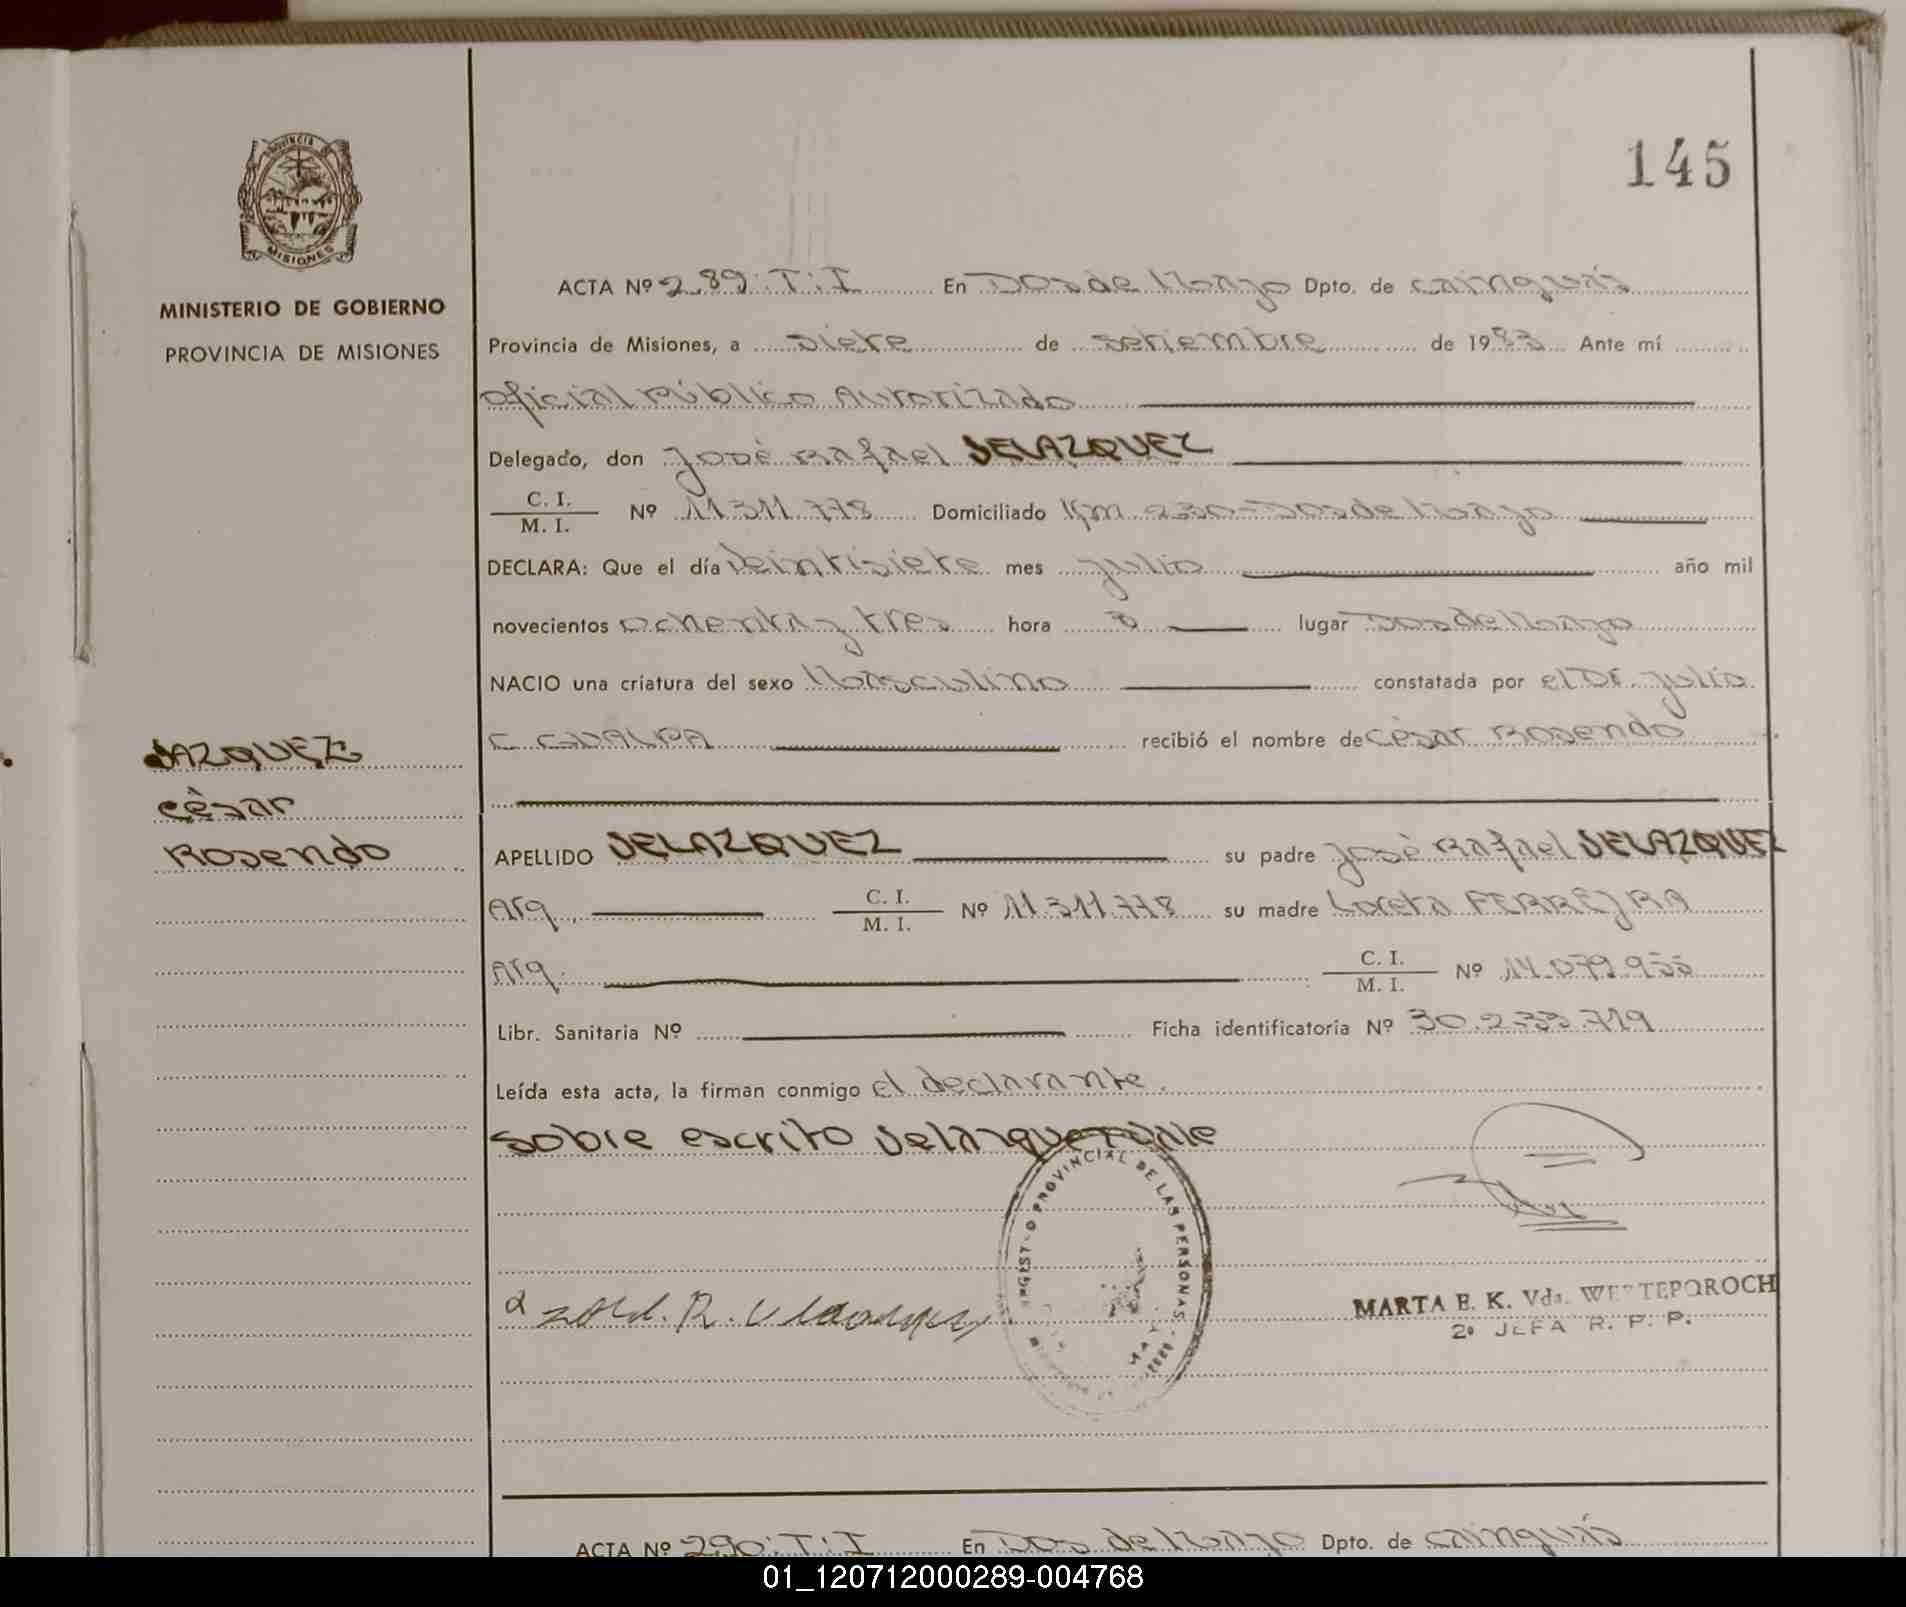 145
PROVINCIA DE
MISIONES
MINISTERIO DE GOBIERNO
PROVINCIA DE MISIONES
ACTA Nº 289: T: I En Dos de Mayo Dpto. de Cainguás
Provincia de Misiones, a siete de setiembre de 1983 Ante mí
Oficial Público Autorizado
Delegado, don José Rafael VELAZQUEZ
C. I.
M. I. Nº 11.311.778 Domiciliado Km 230 - Dos de Mayo
DECLARA: Que el día Veintisiete mes julio año mil
novecientos ochenta y tres hora lugar Dos de Mayo
NACIO una criatura del sexo Masculino constatada por el Dr. Julio
C. GUALPA recibió el nombre de Cèsar Rosendo
VAZQUEZ:
Cèsar
Rosendo
APELLIDO VELAZQUEZ su padre José Rafael VELAZQUEZ
Arg. C. I.
M. I. Nº 11.311.778 su madre Loreta FERREJRA
Arg. C. I.
M. I. Nº 14.079.955
Libr. Sanitaria Nº Ficha identificatoria Nº 30.233.719
Leída esta acta, la firman conmigo el declarante.
Sobre escrito Velazquez Vale
PROVINCIAL DE LAS PERSONAS
MARTA E. K. Vda.
2º JEFA R. P. P.
ACTA Nº 290: T: I En Dos de Mayo Dpto. de Cainguás
01_120712000289-004768